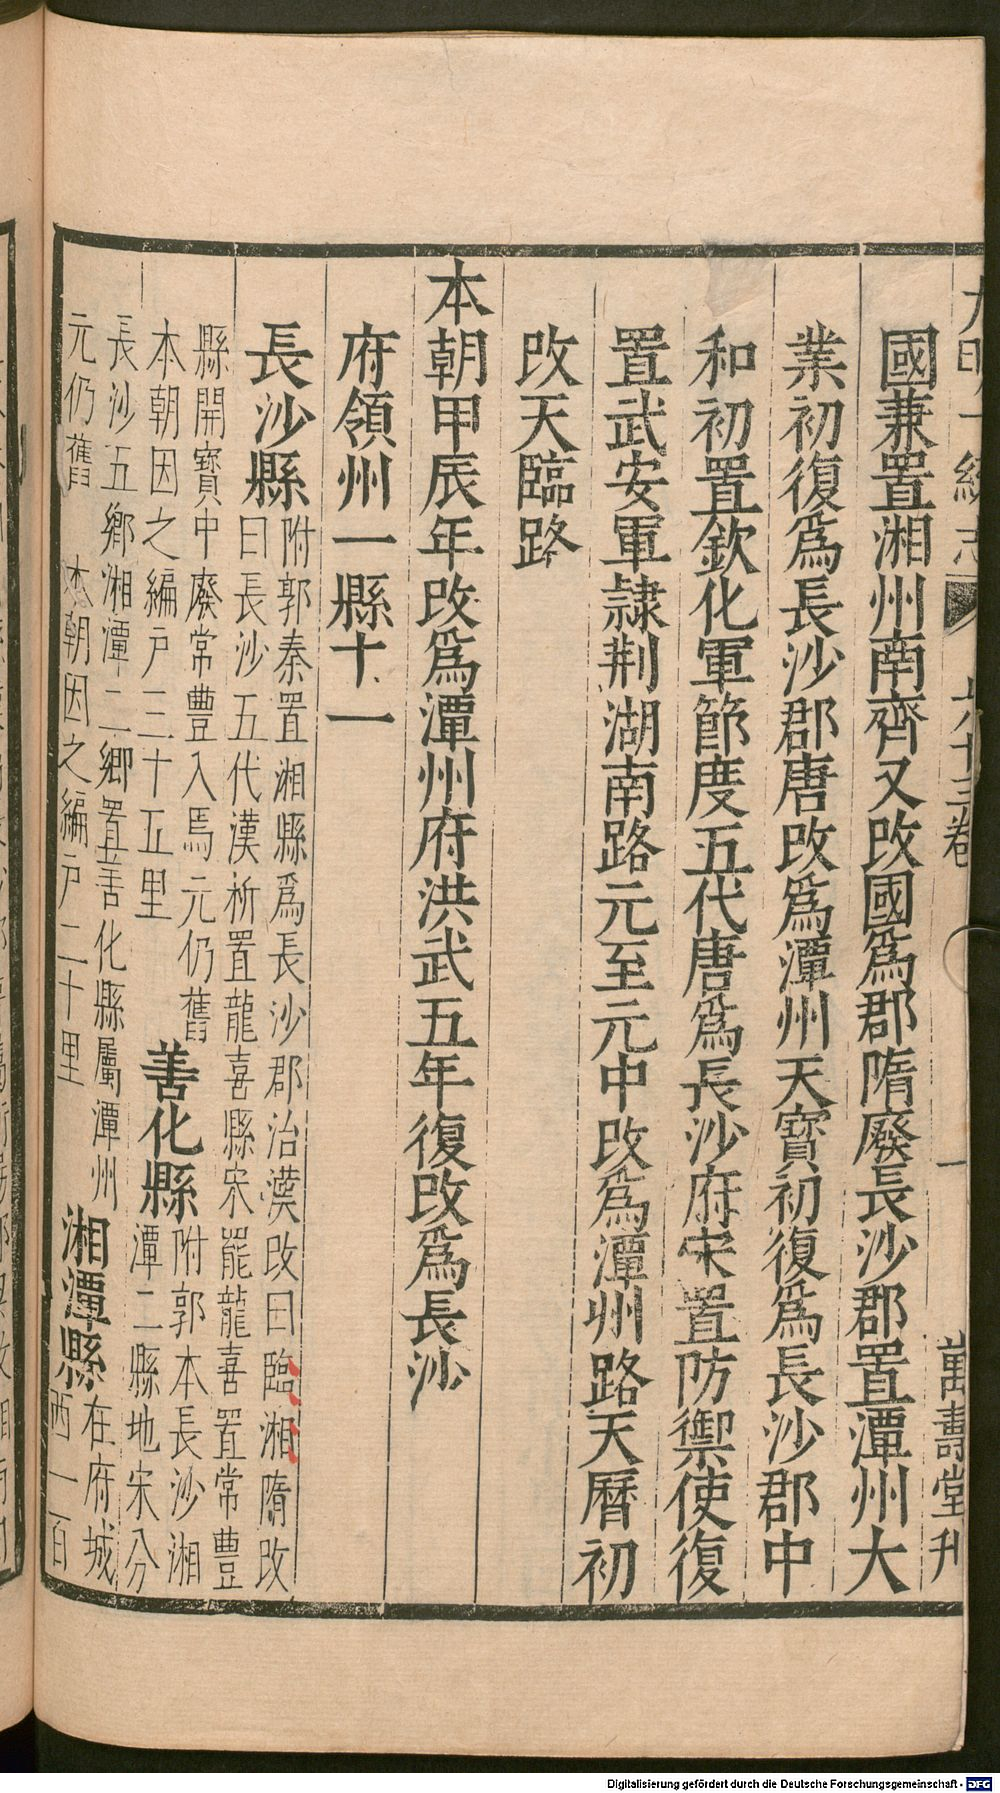 大明一統志 六十三卷 一 萬壽堂刋
國兼置湘州南齊又改國爲郡隋廢長沙郡置潭州大
業初復爲長沙郡唐改爲潭州天寶初復爲長沙郡中
和初置欽化軍節度五代唐爲長沙府宋置防禦使復
置武安軍隷荆湖南路元至元中改爲潭州路天曆初
改天臨路
本朝甲辰年改爲潭州府洪武五年復改爲長沙
府領州一縣十一
長沙縣 附郭秦置湘縣爲長沙郡治漢改曰臨湘隋改
曰長沙五代漢析置龍喜縣宋罷龍喜置常豐
縣開寶中廢常豐入焉元仍舊
本朝因之編戸三十五里 善化縣 附郭本長沙湘
潭二縣地宋分
長沙五鄉湘潭二鄉置善化縣屬潭州
元仍舊 本朝因之編戸二十里 湘潭縣 在府城
西一百
Digitalisierung gefördert durch die Deutsche Forschungsgemeinschaft - DFG